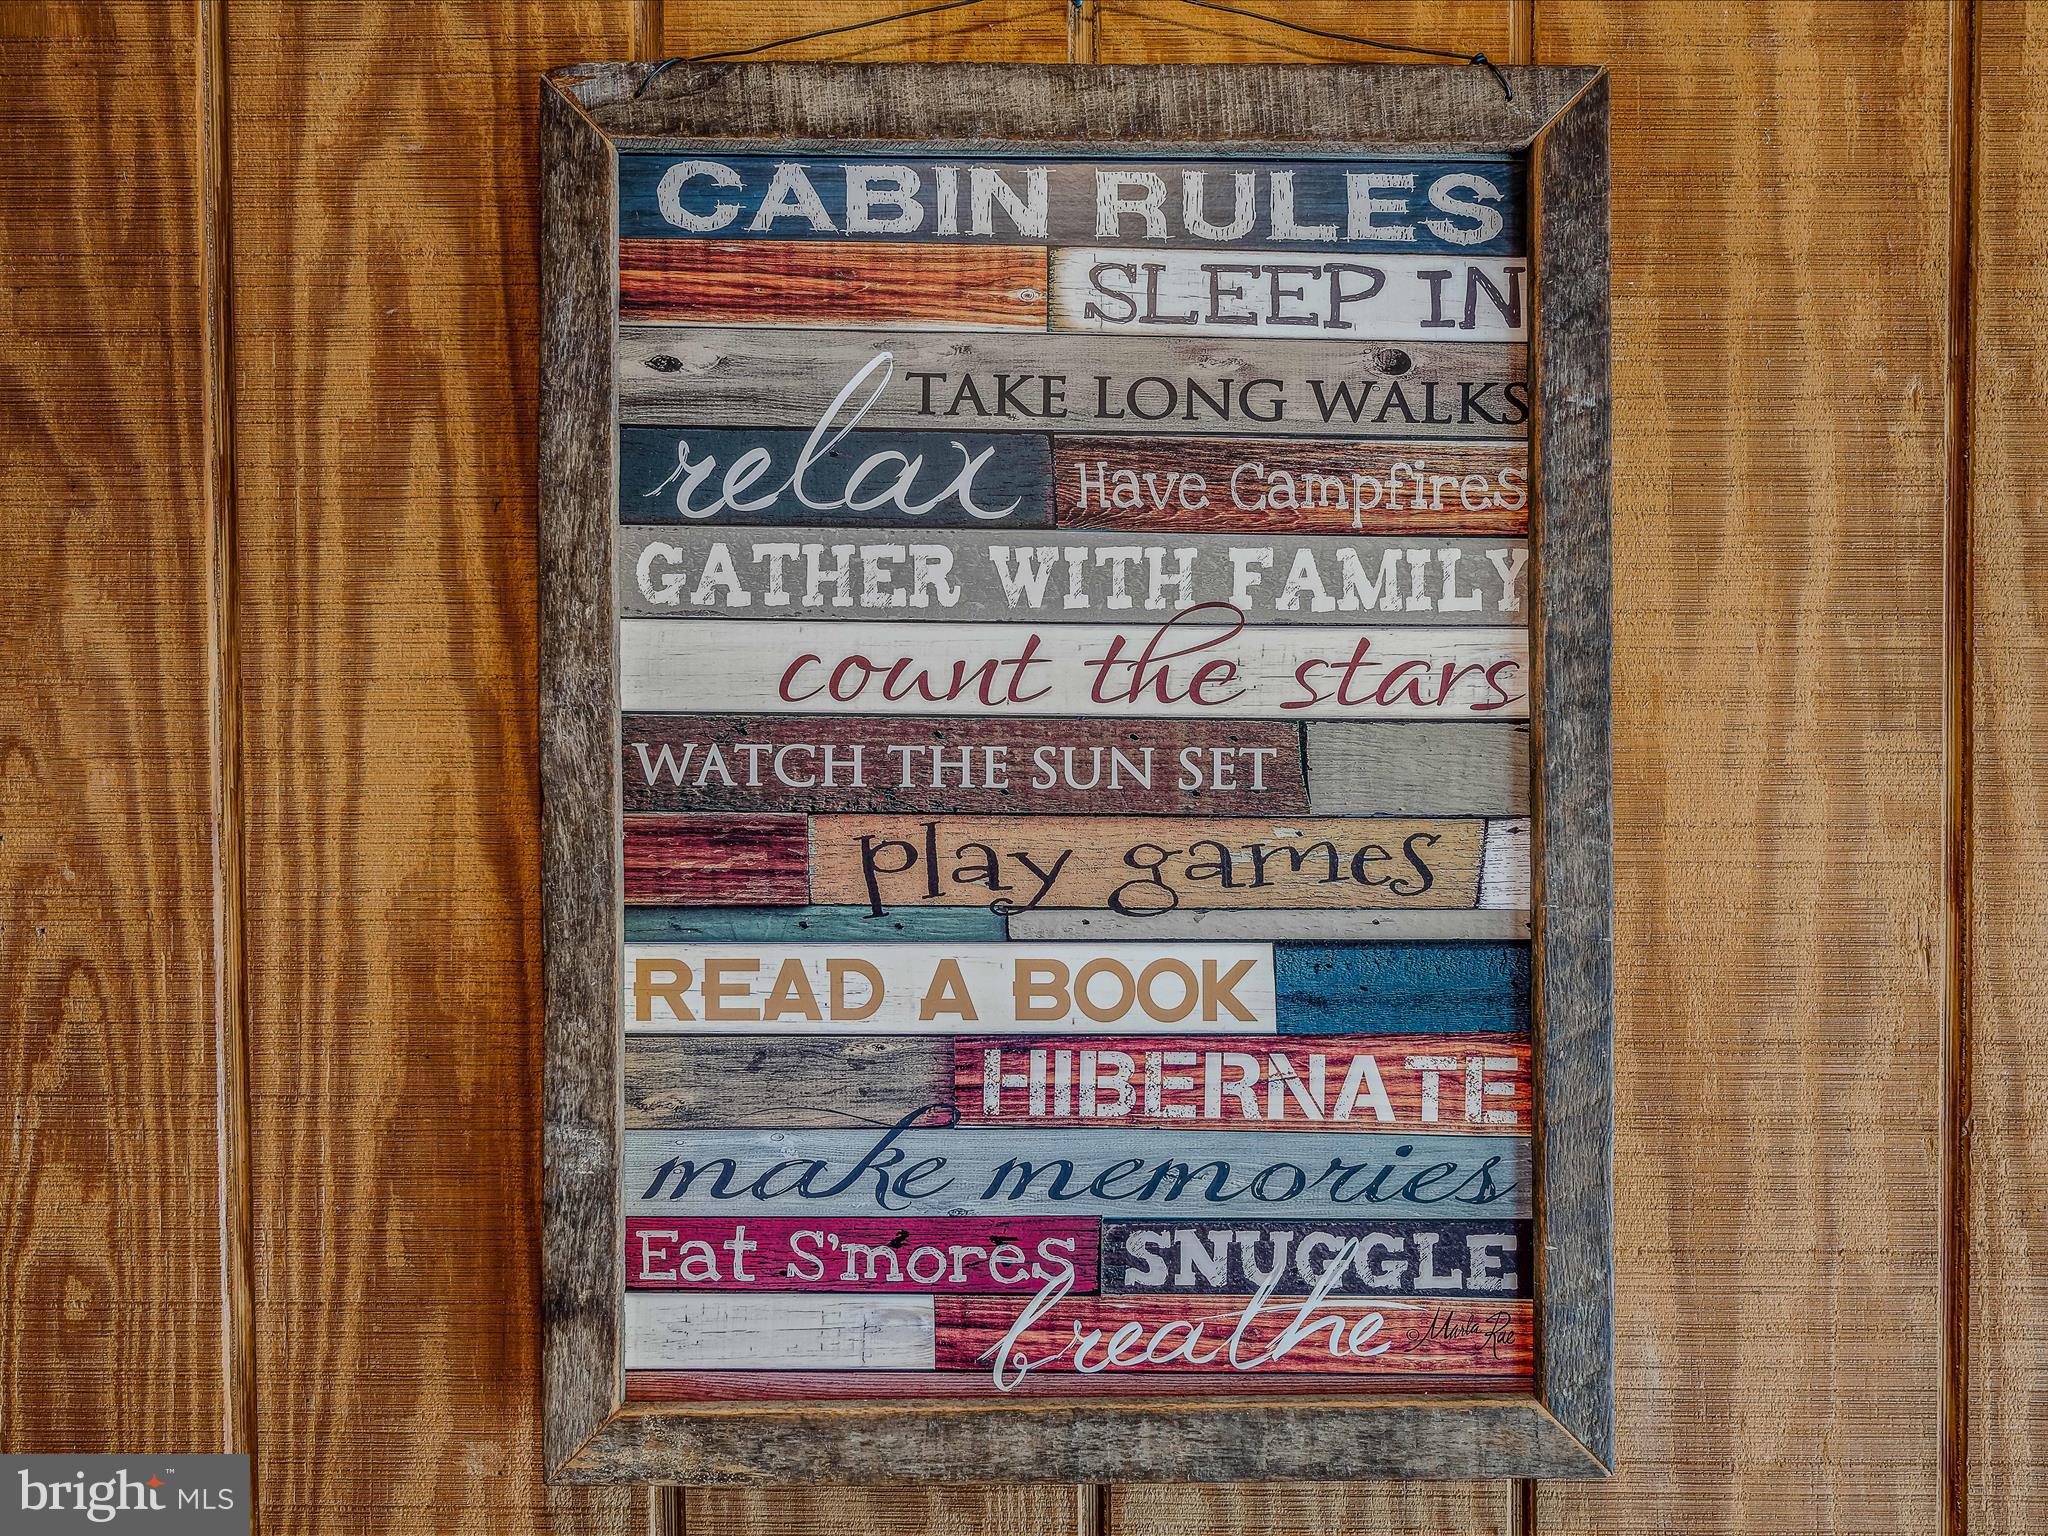 CABIN RULES
SLEEP IN
TAKE LONG WALKS
relax Have Campfires
GATHER WITH FAMILY
count the stars
WATCH THE SUN SET
play games
READ A BOOK
HIBERNATE
make memories
Eat S'mores SNUGGLE
breathe © Marla Rae
bright™ MLS